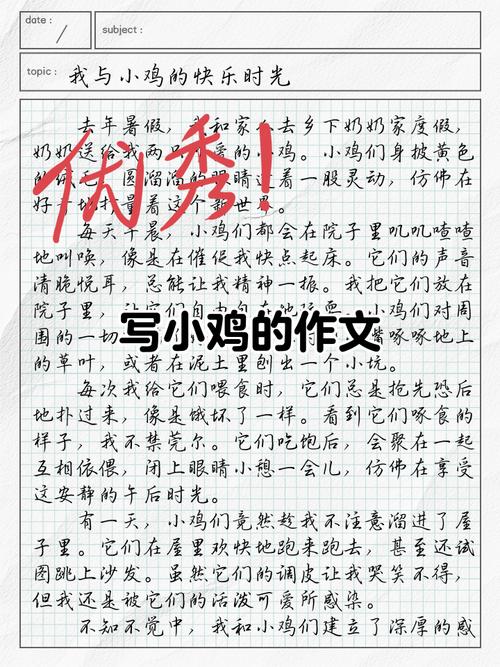 date :
subject:
topic : 我与小鸡的快乐时光
去年暑假，我和家人去乡下奶奶家度假，
奶奶送给我两只可爱的小鸡。小鸡们身披黄色
的绒毛，圆溜溜的眼睛透着一股灵动，仿佛在
好奇地打量着这个新世界。
优秀！
每天早晨，小鸡们都会在院子里叽叽喳喳
地叫唤，像是在催促我快点起床。它们的声音
清脆悦耳，总能让我精神一振。我把它们放在
院子里，让它们自由自在地玩耍。小鸡们对周
围的一切
嘴啄啄地上
写小鸡的作文
的草叶，或者在泥土里刨出一个小坑。
每次我给它们喂食时，它们总是抢先恐后
地扑过来，像是饿坏了一样。看到它们啄食的
样子，我不禁莞尔。它们吃饱后，会聚在一起
互相依偎，闭上眼睛小憩一会儿，仿佛在享受
这安静的午后时光。
有一天，小鸡们竟然趁我不注意溜进了屋
子里。它们在屋里欢快地跑来跑去，甚至还试
图跳上沙发。虽然它们的调皮让我哭笑不得，
但我还是被它们的活泼可爱所感染。
不知不觉中，我和小鸡们建立了深厚的感